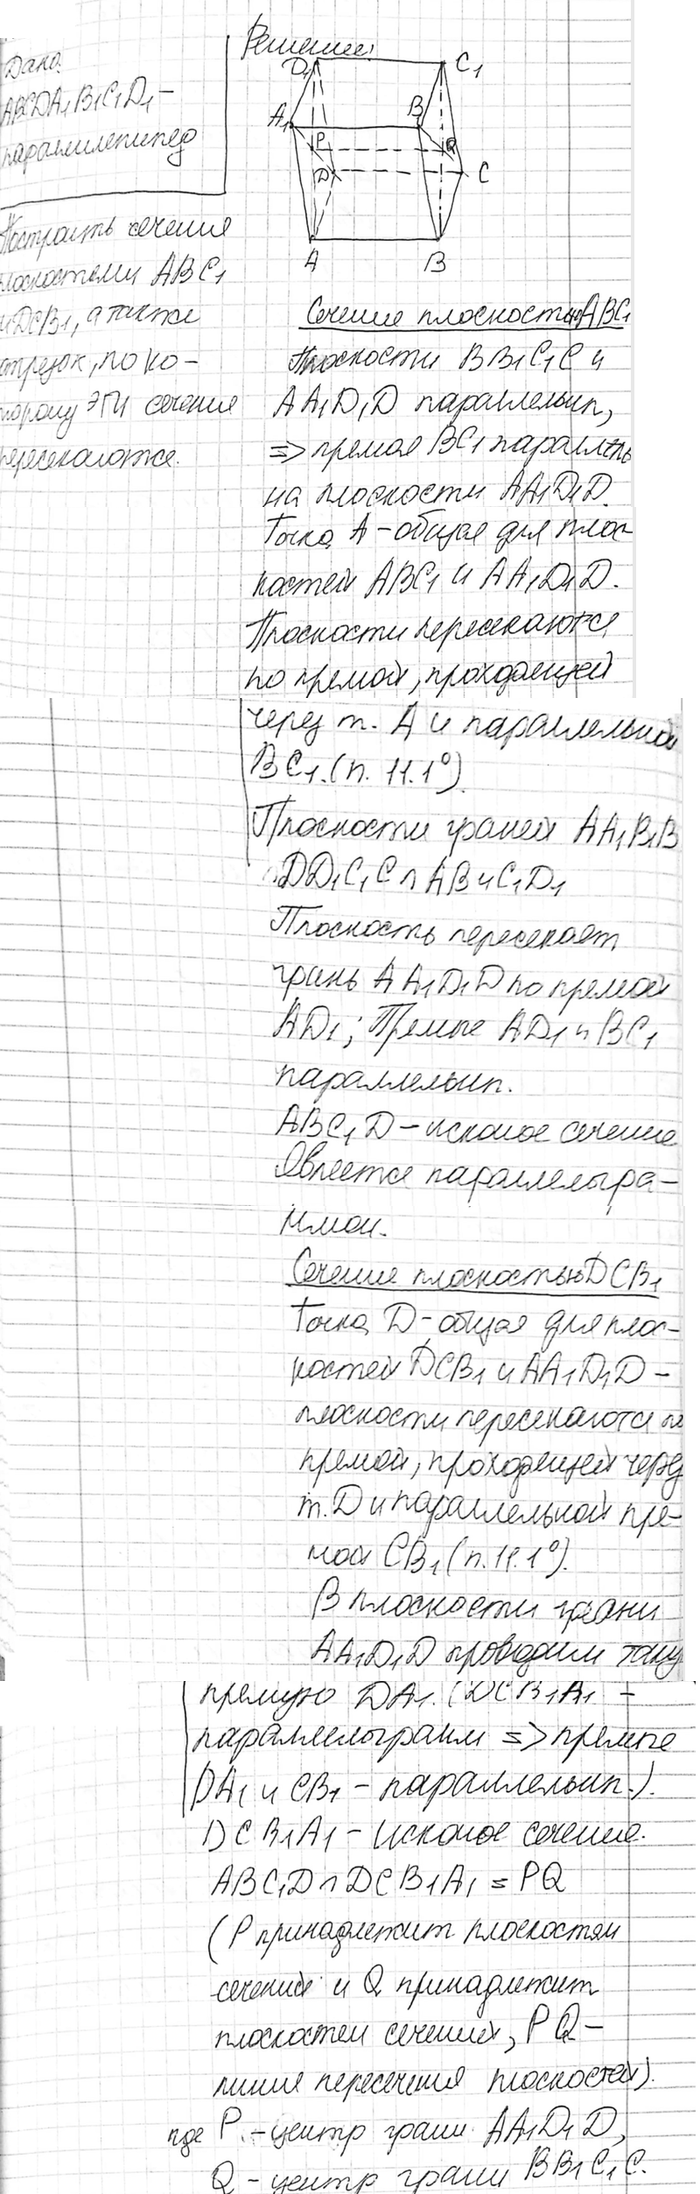 Дано:
ABCDA₁B₁C₁D₁ –
параллелепипед
Построить сечения
плоскостями ABC₁
и DCB₁, а также
отрезок, по ко-
торому эти сечения
пересекаются.
Решение:
D₁
C₁
A₁
B
P
Q
D
C
A
B
Сечение плоскостью ABC₁
Плоскости BB₁C₁C и
AA₁D₁D параллельны,
=> прямая BC₁ параллель
на плоскости AA₁D₁D.
Точка A – общая для плос-
костей ABC₁ и AA₁D₁D.
Плоскости пересекаются
по прямой, проходящей
через т. A и параллельной
BC₁. (п. 11.1°)
Плоскости граней AA₁B₁B
DD₁C₁C ∩ AB и C₁D₁
Плоскость пересекает
грань AA₁D₁D по прямой
AD₁; Прямые AD₁ и BC₁
параллельны.
ABC₁D – искомое сечение
Является параллелогра-
ммом.
Сечение плоскостью DCB₁
Точка D – общая для плос-
костей DCB₁ и AA₁D₁D –
плоскости пересекаются по
прямой, проходящей через
т. D и параллельной пря-
мой CB₁ (п. 11.1°).
В плоскости грани
AA₁D₁D проводим таку
прямую DA₁. (DCB₁A₁ –
параллелограмм => прямые
DA₁ и CB₁ – параллельны.).
DCB₁A₁ – искомое сечение.
ABC₁D ∩ DCB₁A₁ = PQ
(P принадлежит плоскостям
сечений и Q принадлежит
плоскостям сечений, PQ –
линия пересечения плоскостей).
где P – центр грани AA₁D₁D,
Q – центр грани BB₁C₁C.